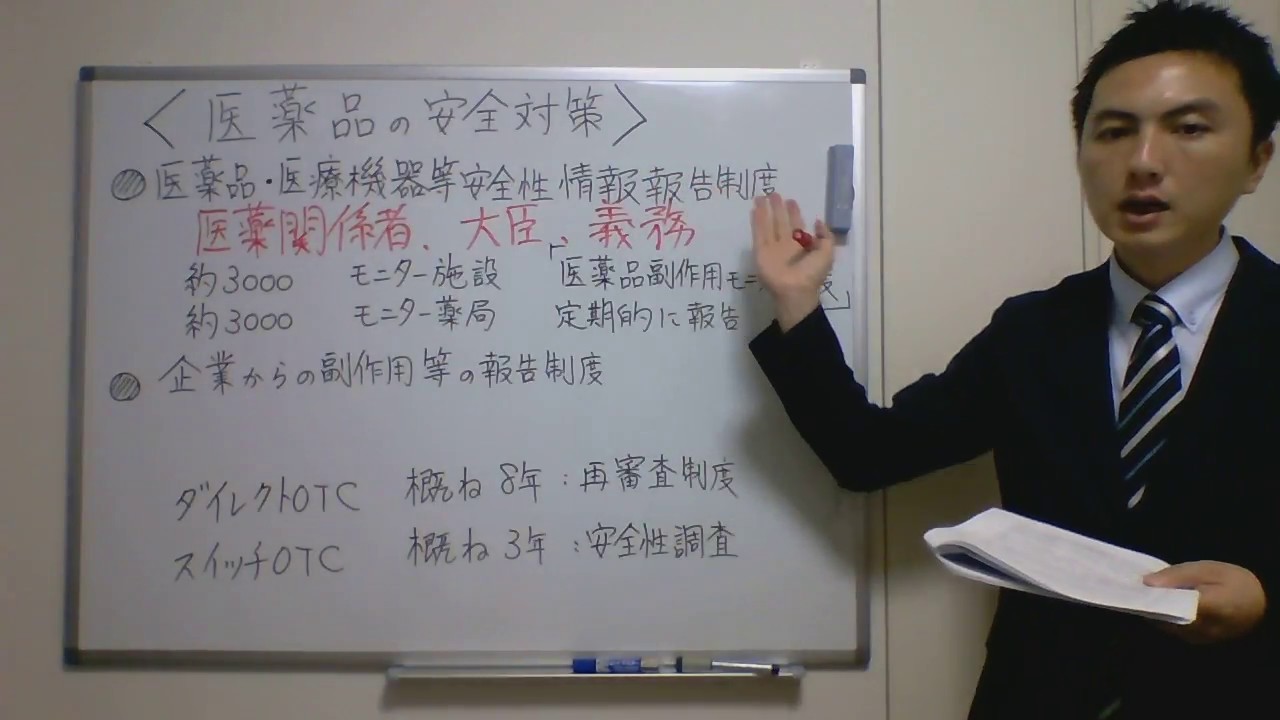 〈医薬品の安全対策〉
医薬品・医療機器等安全性情報報告制度
医薬関係者、大臣、義務
約3000 モニター施設 「医薬品副作用モニ度」
約3000 モニター薬局 定期的に報告
企業からの副作用等の報告制度
ダイレクトOTC 概ね8年：再審査制度
スイッチOTC 概ね3年：安全性調査